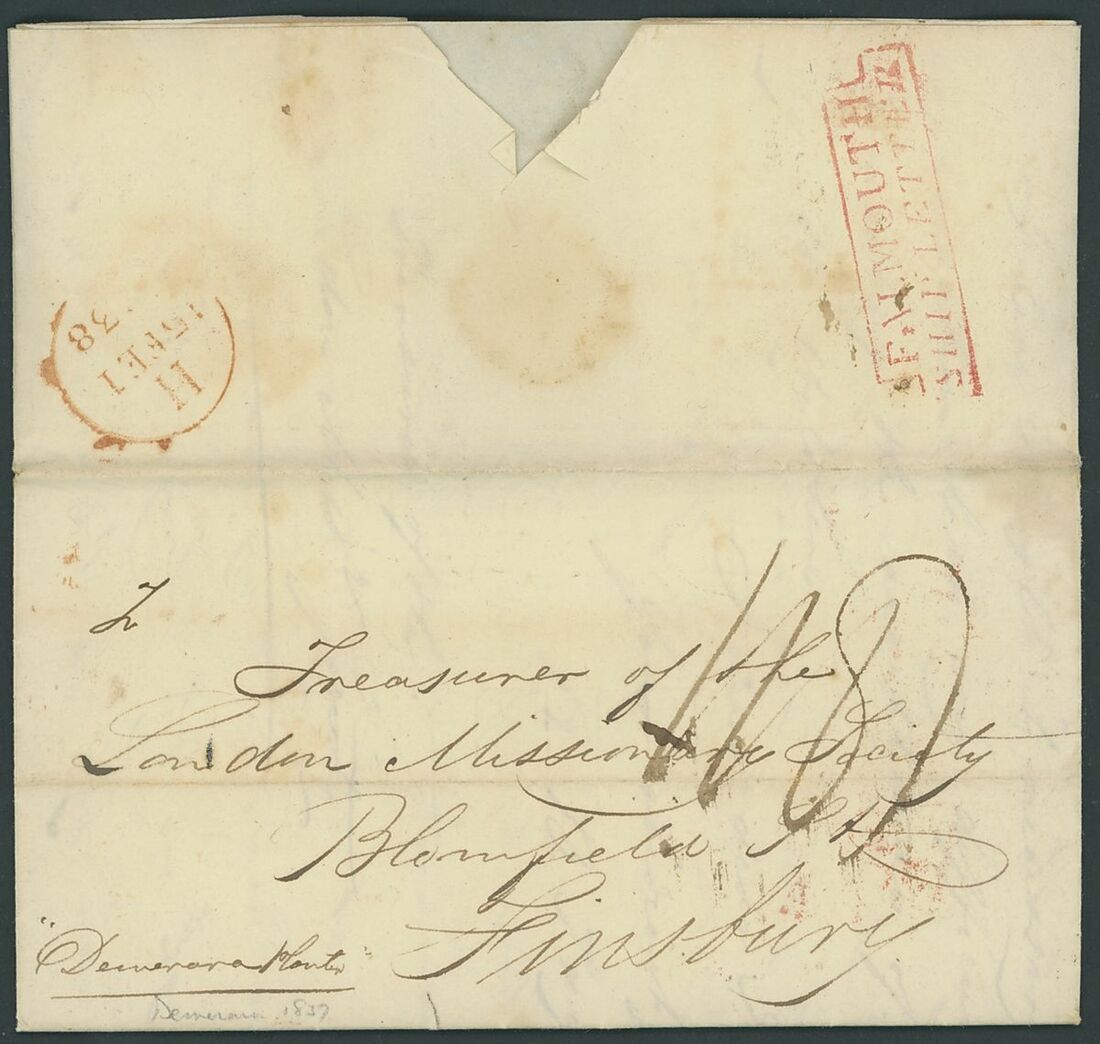 FALMOUTH
SHIP LETTER
H
15 FE 1
38
To
Treasurer of the
London Missionary Society
Blomfield St
Finsbury
"Demerara Planter"
Demerara 1837